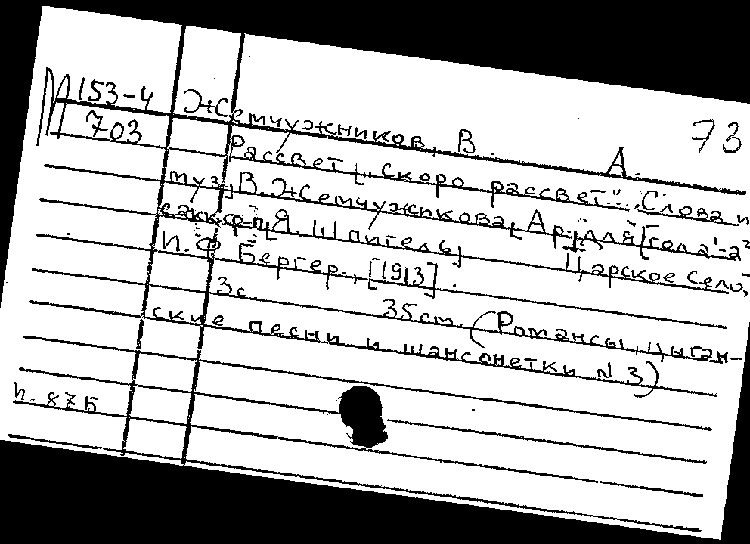 М 153-4
703
73
Жемчужников, В. А.
Рассвет [„Скоро рассвет". Слова и
муз.] В. Жемчужникова, Ар. для [гол a¹-a²
с акк. ф-п.] Я. Шпигель,
Царское Село,
И. Ф. Бергер., [1913].
3с. 35см. (Романсы, цыган-
ские песни и шансонетки №3)
п. 87Б